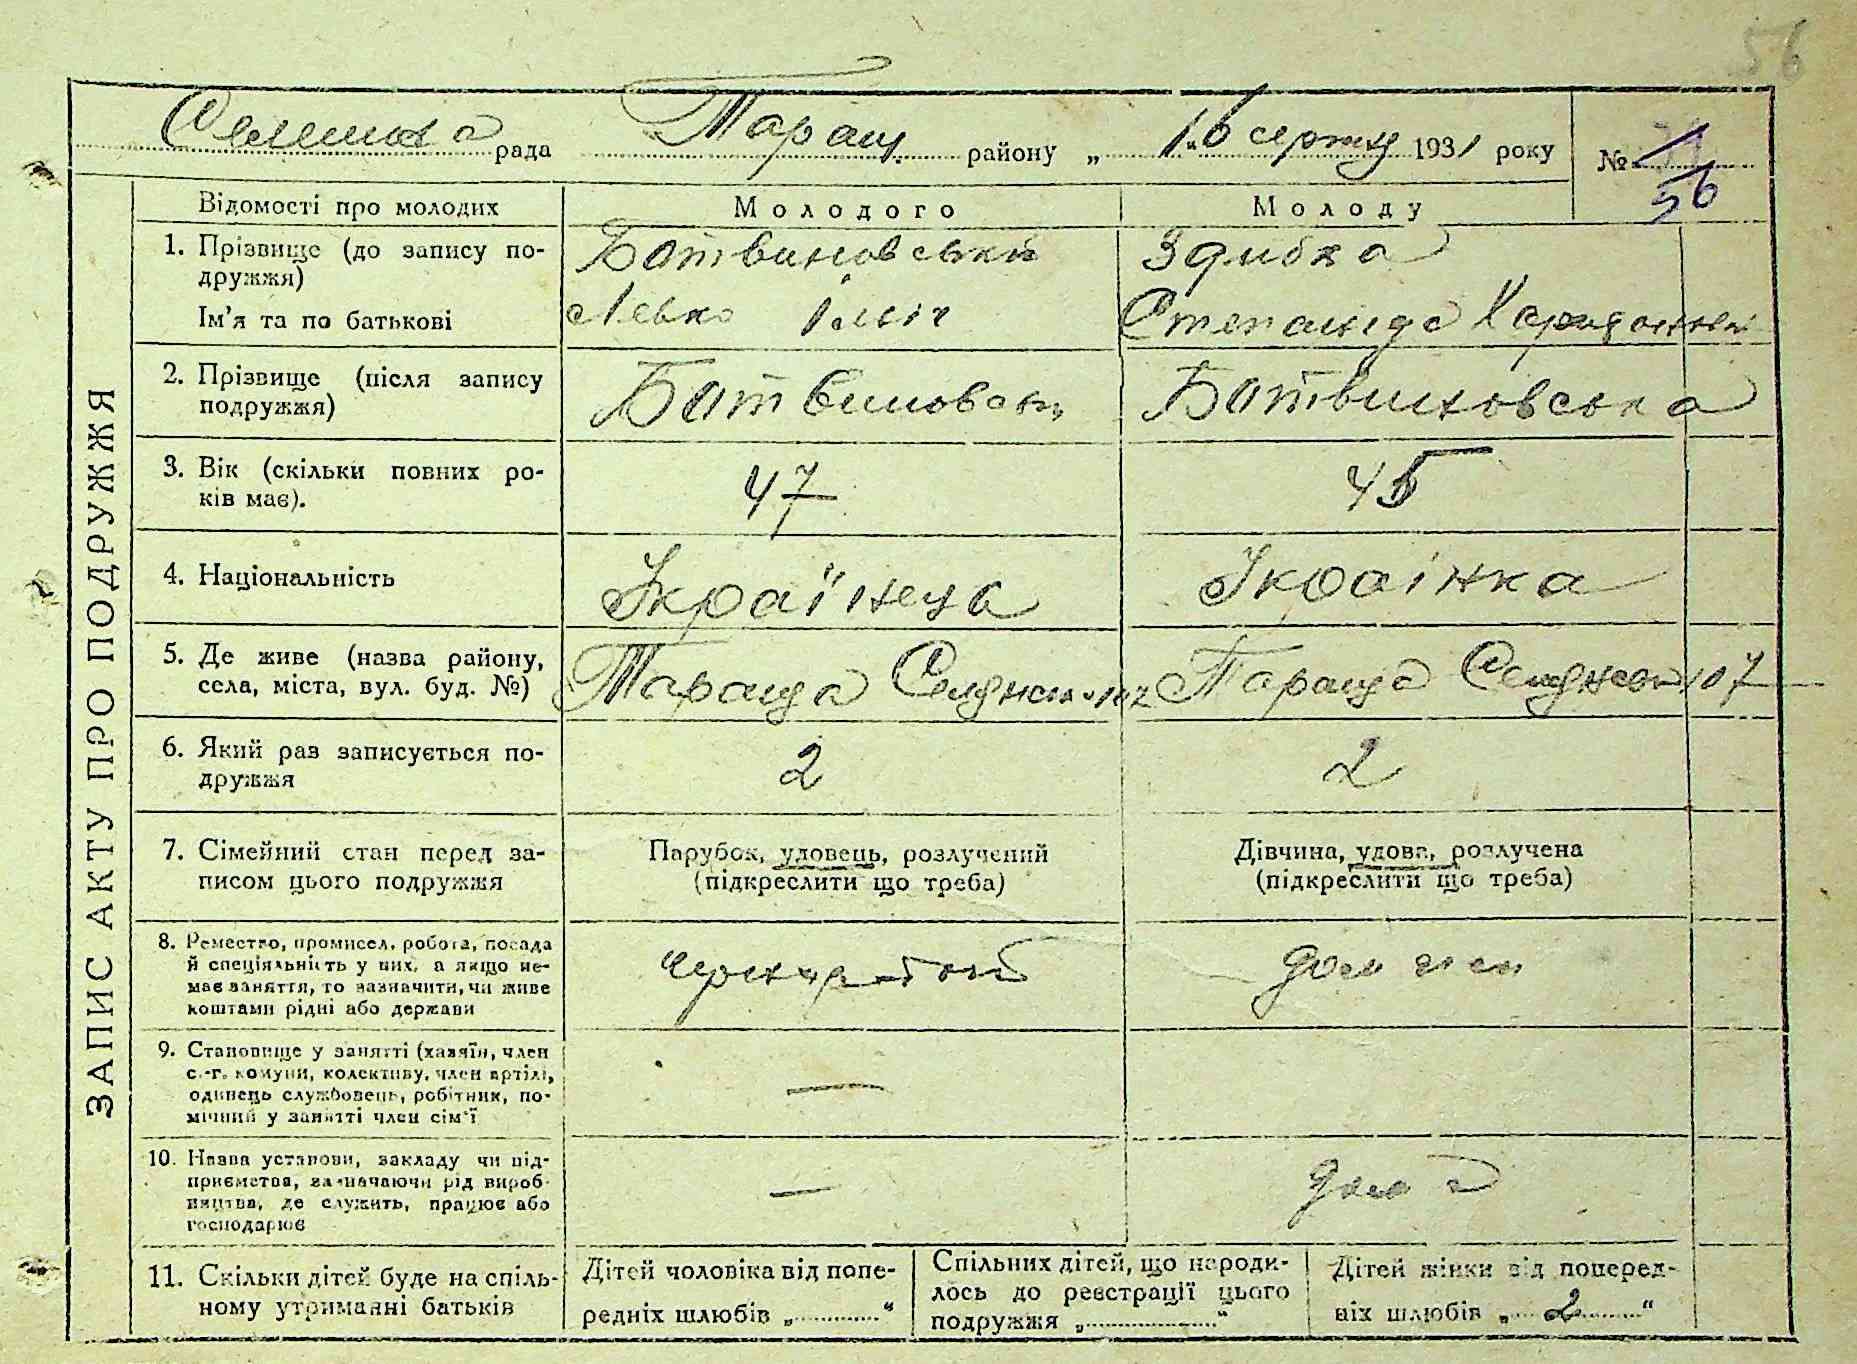 56
Селищна рада Таращ. району „ 16 серпня 1931 року № 56
ЗАПИС АКТУ ПРО ПОДРУЖЖЯ
Відомості про молодих Молодого Молоду
1. Прізвище (до запису по- Ботвиновський Здибка
дружжя)
Ім'я та по батькові Левко Ілліч Степанида
2. Прізвище (після запису Ботвиновськ Ботвиновська
подружжя)
3. Вік (скільки повних ро- 47 45
ків має).
4. Національність Українець Украінка
5. Де живе (назва району, Тараща Тараща 107
села, міста, вул. буд. №)
6. Який раз записується по- 2 2
дружжя
7. Сімейний стан перед за- Парубок, удовець, розлучений Дівчина, удова, розлучена
писом цього подружжя (підкреслити що треба) (підкреслити що треба)
8. Ремество, промисел, робота, посада
й спеціяльність у них, а якщо не-
має заняття, то зазначити, чи живе
коштами рідні або держави
9. Становище у занятті (хазяїн, член —
с.-г. комуни, колективу, член артілі,
одинець службовець, робітник, по-
мічний у занятті член сім'ї
10. Назва установи, закладу чи під- — дома
приємства, зазначаючи рід вироб-
ництва, де служить, працює або
господарює
11. Скільки дітей буде на спіль- Дітей чоловіка від попе- Спільних дітей, що народи- Дітей жінки від поперед-
ному утриманні батьків редніх шлюбів „ “ лось до реєстрації цього ніх шлюбів „ 2 “
подружжя „ “